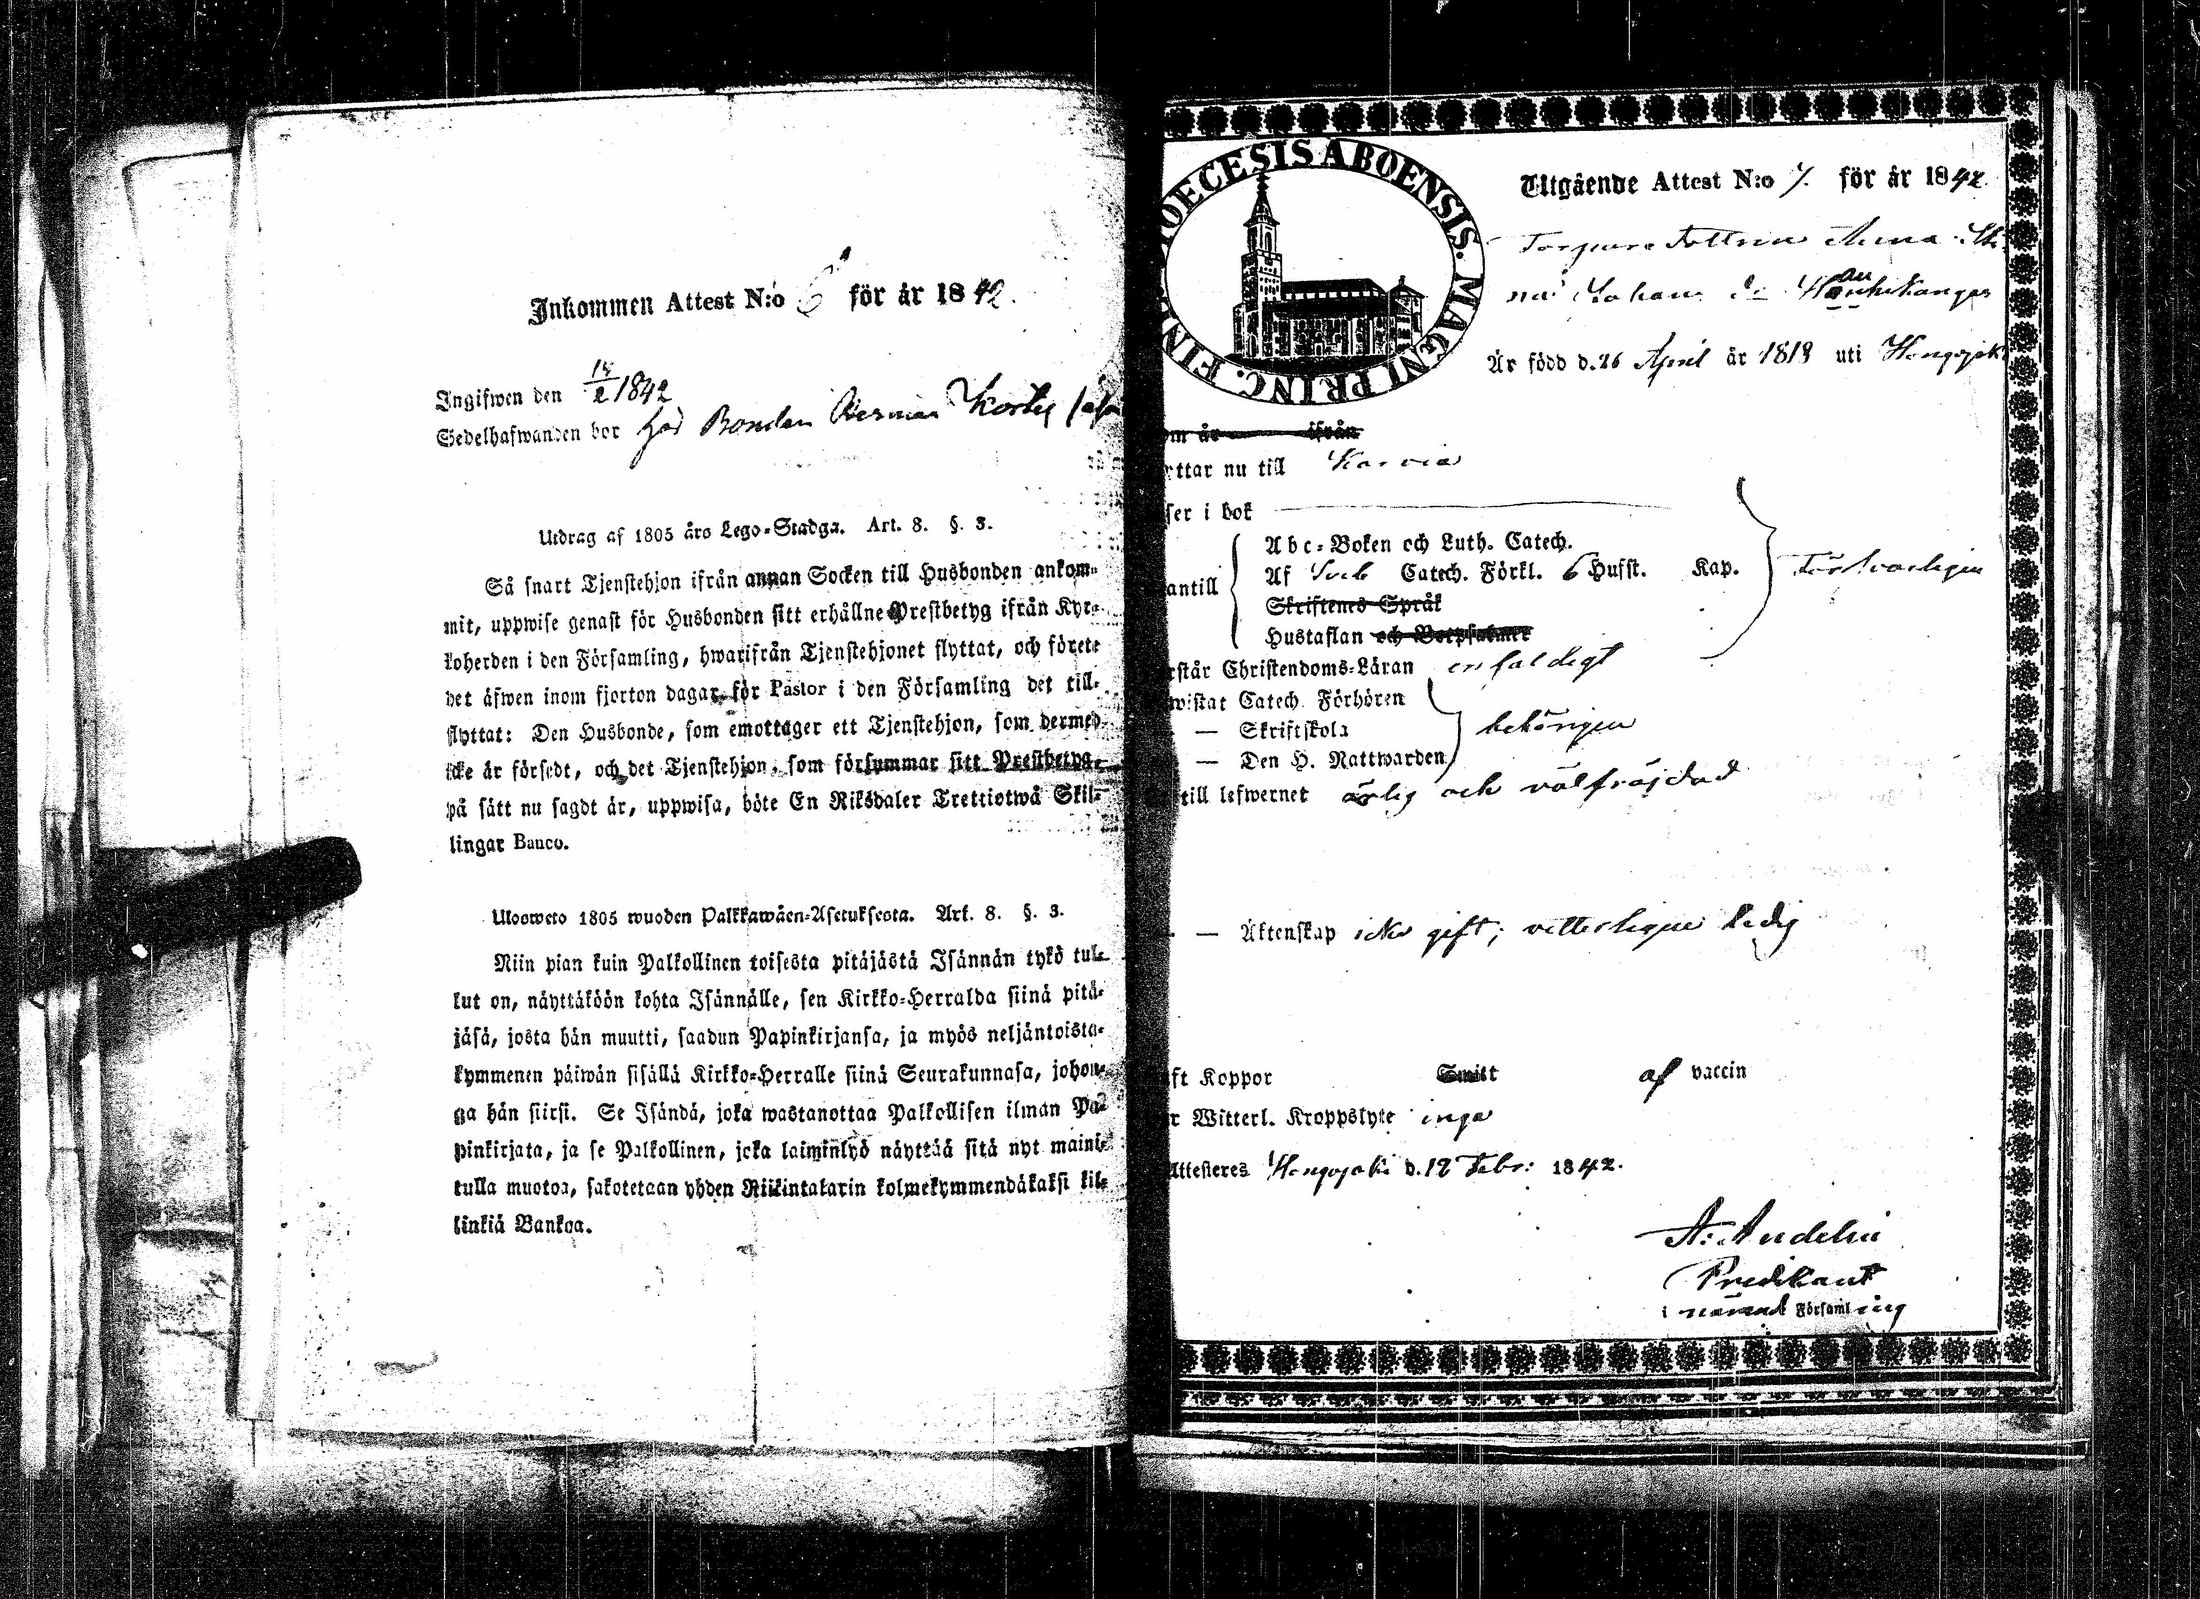 Inkommen Attest N:o 6 för år 1842.
Ingifwen den 14/2 1842
Sedelhafwanden bor hos Bonden
Utdrag af 1805 års Lego-Stadga. Art. 8. §. 3.
Så snart Tjenstehjon ifrån annan Socken till Husbonden ankom-
mit, uppwise genast för Husbonden sitt erhållne Prestbetyg ifrån Kyr-
koherden i den Församling, hwarifrån Tjenstehjonet flyttat, och förete
det äfwen inom fjorton dagar för Pastor i den Församling det till-
flyttat: Den Husbonde, som emottager ett Tjenstehjon, som dermed
icke är försedt, och det Tjenstehjon, som försummar sitt Prestbetyg
på sätt nu sagdt är, uppwisa, böte En Riksdaler Trettiotwå Skil-
lingar Banco.
Ulosweto 1805 wuoden Palkkawäen-Asetuksesta. Art. 8. §. 3.
Niin pian kuin Palkollinen toisesta pitäjästä Isännän tykö tul-
lut on, näyttäköön kohta Isännälle, sen Kirkko-Herralda siinä pitä-
jäsä, josta hän muutti, saadun Papinkirjansa, ja myös neljäntoista-
kymmenen päiwän sisällä Kirkko-Herralle siinä Seurakunnasa, johon-
ga hän siirsi. Se Isändä, joka wastanottaa Palkollisen ilman Pa-
pinkirjata, ja se Palkollinen, joka laiminlyö näyttää sitä nyt maini-
tulla muotoa, sakotetaan yhden Riikintalarin kolmekymmendäkaksi kil-
linkiä Bankoa.
DIOECESIS ABOENSIS. MAGNI PRINC. FIN
Utgående Attest N:o 7. för år 1842
Torpare Dottren Anna
Johans d:r
Är född d. 26 April år 1818 uti Hongojoki
om år ifrån
ttar nu till Karvia
ser i bok
antill
Abc-Boken och Luth. Catech.
Af Sveb Catech. Förkl. 6 Husst. Kap. Försvarligen
Skriftenes Språk
Hustaflan och Botpsalmer
rstår Christendoms-Läran enfaldigt
wistat Catech. Förhören
— Skriftskola behörigen
— Den H. Nattwarden
till lefwernet ärlig och välfrejdad
— Äktenskap icke gift; vetterligen ledig
ft Koppor Smitt af vaccin
r Witterl. Kroppslyte inga
Attesteres Hongojoki d. 12 Febr: 1842.
A: Andelin
Predikant
i nämnd Församling